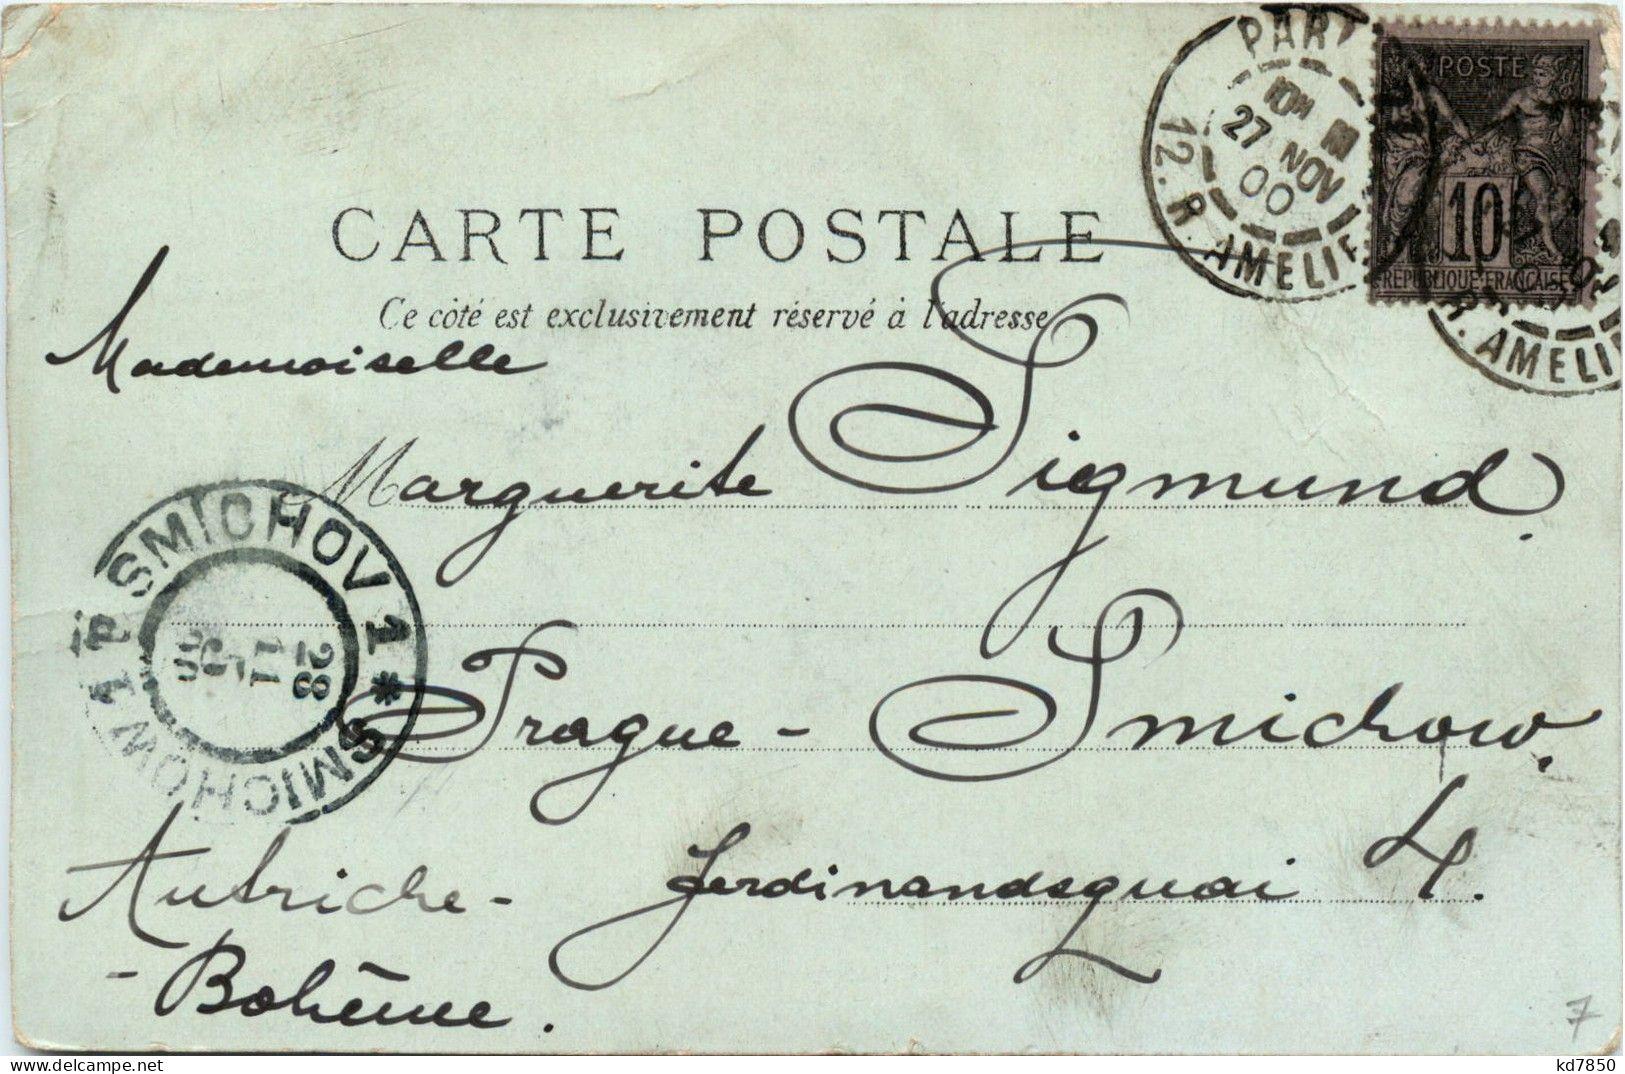 PARI
12. R. AMELIE
10M
27 NOV
00
POSTE
10
RÉPUBLIQUE FRANÇAISE
R. AMELIE
CARTE POSTALE
Ce côté est exclusivement réservé à l'adresse
Mademoiselle
Marguerite Sigmund.
SMICHOV 1 * SMICHOW 1
28
11
Prague - Smichow.
Autriche - Ferdinandsquai 4.
- Bohême.
7
kd7850